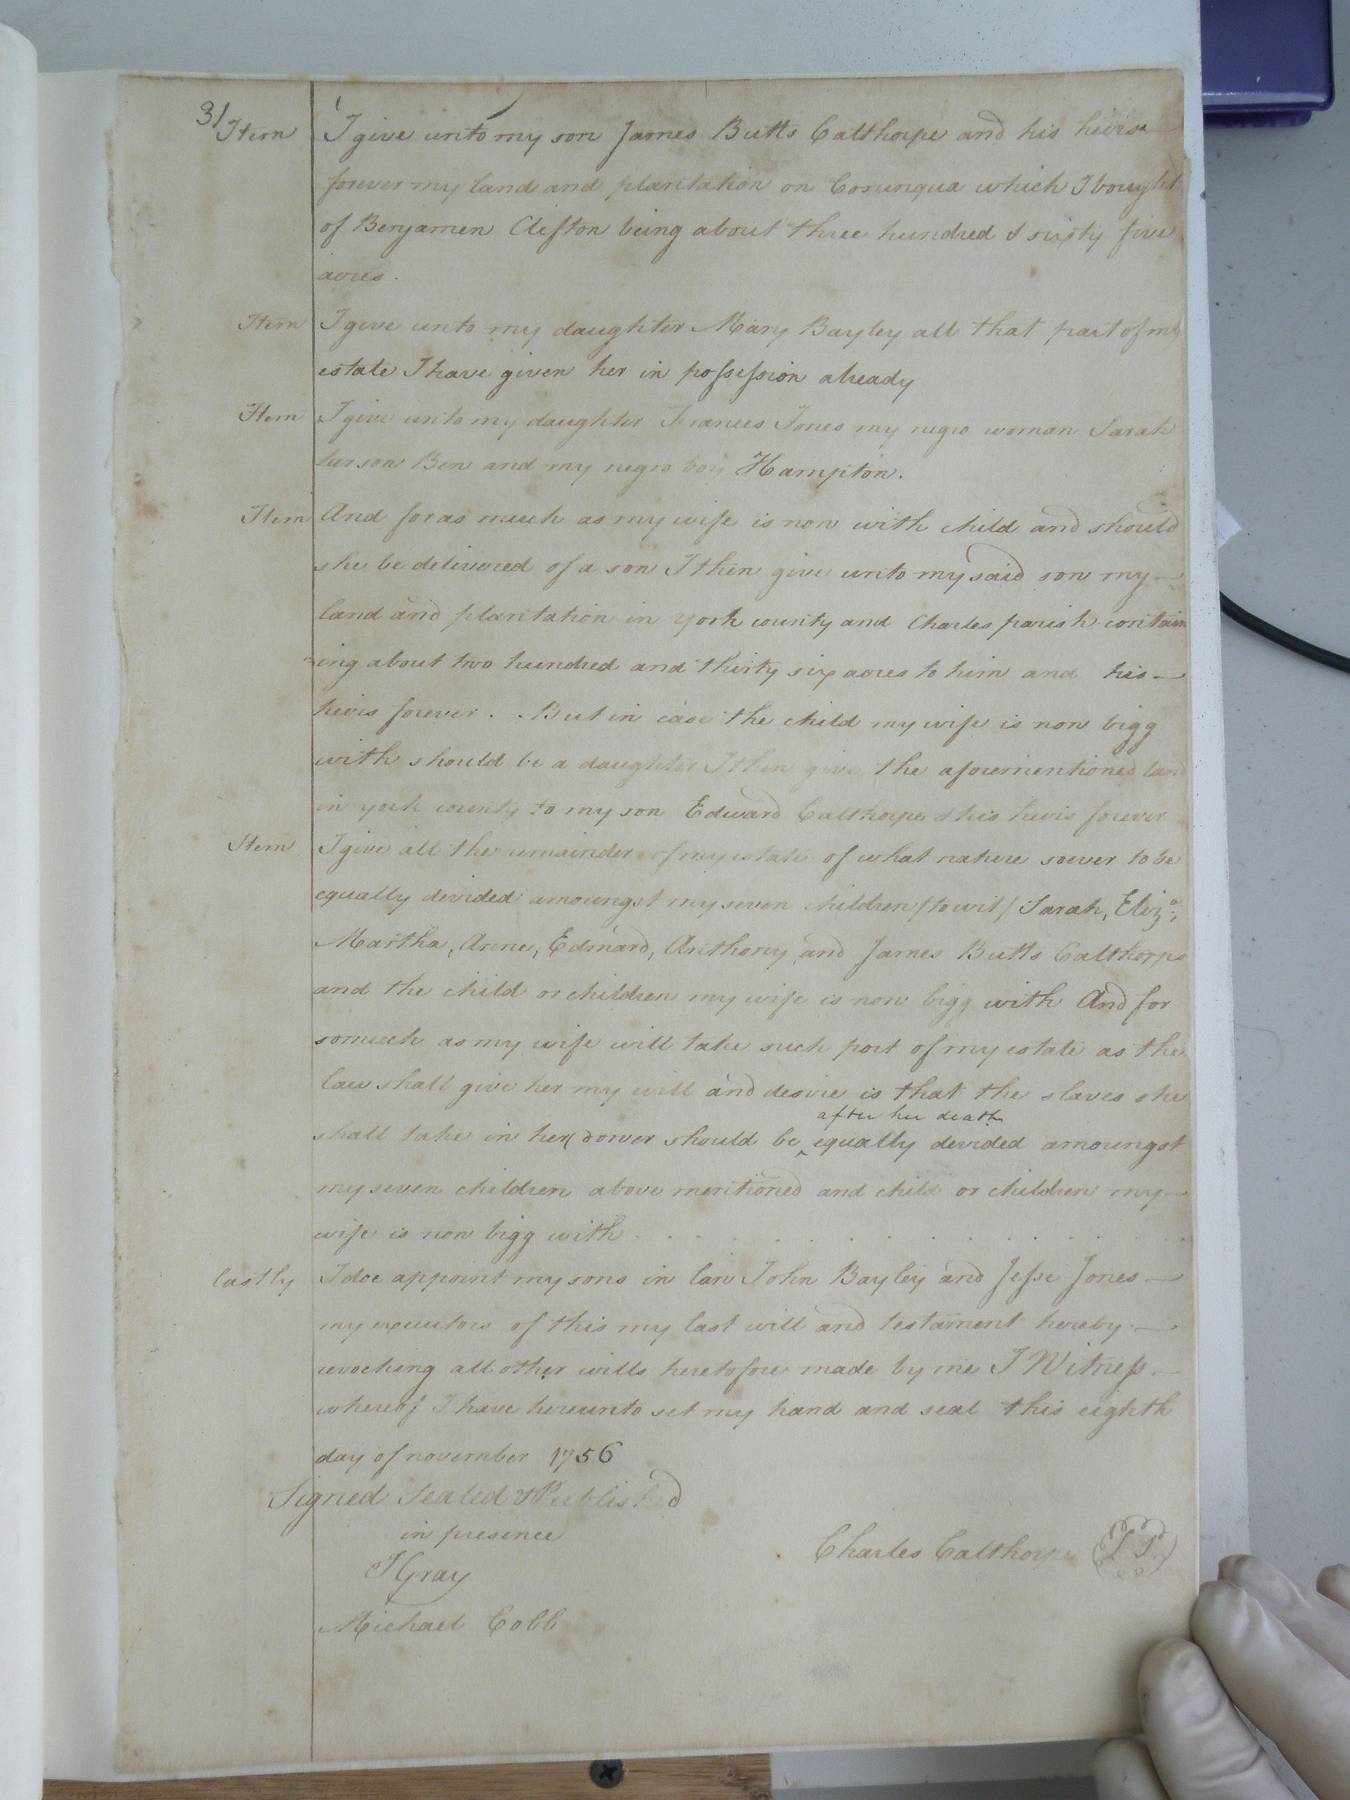 31
Item I give unto my son James Butts Calthorpe and his heirs
forever my land and plantation on Cosunqua which I bought
of Benjamen Clifton being about three hundred & sixty five
acres.
Item I give unto my daughter Mary Bayley all that part of my
estate I have given her in possession already
Item I give unto my daughter Frances Jones my negro woman Sarah
her son Ben and my negro boy Hampton.
Item And foras much as my wife is now with child and should
she be delivered of a son I then give unto my said son my
land and plantation in york county and Charles parish contain
ing about two hundred and thirty six acres to him and his
heirs forever. But in case the child my wife is now bigg
with should be a daughter I then give the aforementioned land
in york county to my son Edward Calthorpe & his heirs forever
Item I give all the remainder of my estate of what nature soever to be
equally devided amoungst my seven children /to wit/ Sarah, Eliza,
Martha, Anne, Edward, Anthony, and James Butts Calthorpe
and the child or children my wife is now bigg with And for
somuch as my wife will take such part of my estate as the
law shall give her my will and desire is that the slaves she
after her death
shall take in her dower should be ^ equally devided amoungst
my seven children above mentioned and child or children my
wife is now bigg with
lastly I doe appoint my sons in law John Bayley and Jesse Jones
my executors of this my last will and testament hereby
revocking all other wills heretofore made by me I Witness
whereof I have hereunto set my hand and seal this eighth
day of november 1756
Signed Sealed & Published
in presence
Charles Calthorpe LS
JGray
Michael Cobb